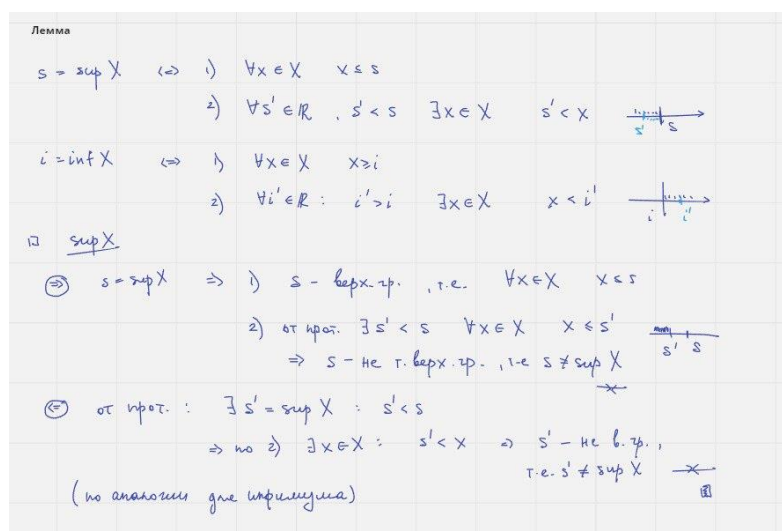 Лемма
s = sup X <=> 1) ∀x ∈ X x ≤ s
2) ∀s' ∈ ℝ, s' < s ∃x ∈ X s' < x
s' s
i = inf X <=> 1) ∀x ∈ X x ≥ i
2) ∀i' ∈ ℝ : i' > i ∃x ∈ X x < i'
i i'
sup X
=> s = sup X => 1) s - верх. гр., т.е. ∀x ∈ X x ≤ s
2) от прот. ∃ s' < s ∀x ∈ X x ≤ s'
s' s
=> s - не т. верх. гр., т-е s ≠ sup X
<= от прот. : ∃ s' = sup X : s' < s
=> по 2) ∃x ∈ X : s' < x => s' - не в. гр.,
т.е. s' ≠ sup X
(по аналогии для инфимума)